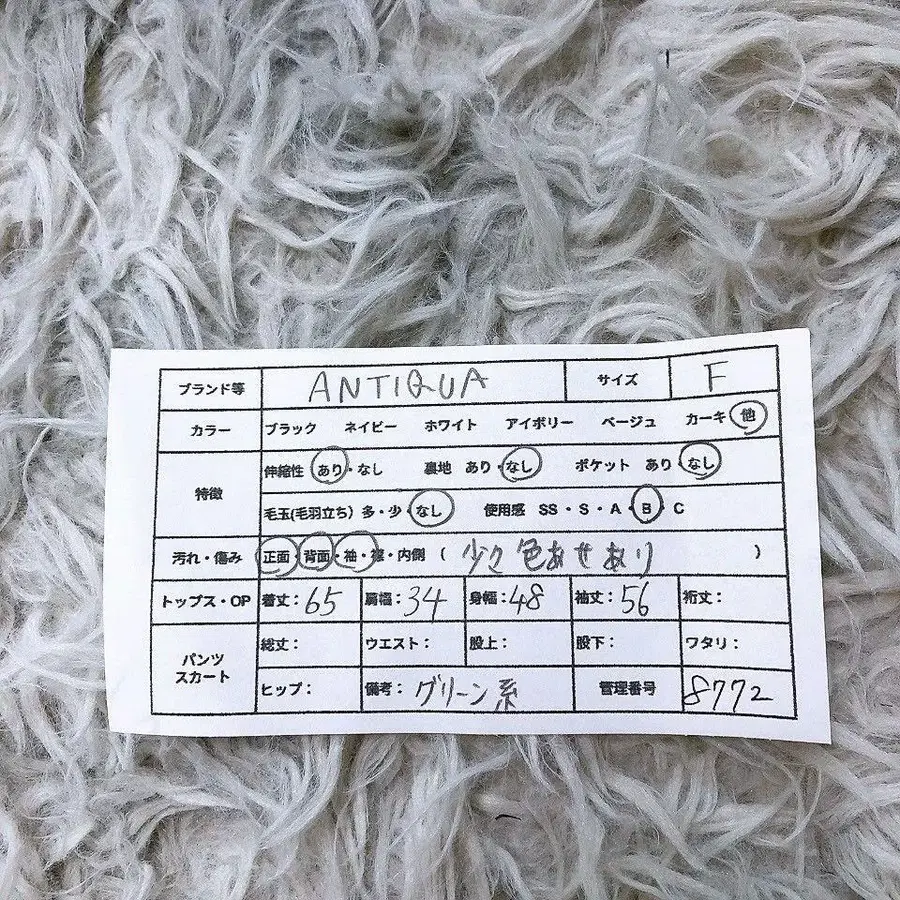 ブランド等 ANTIQUA サイズ F
カラー ブラック ネイビー ホワイト アイボリー ベージュ カーキ 他
特徴 伸縮性 あり・なし 裏地 あり・なし ポケット あり・なし
毛玉(毛羽立ち) 多・少・なし 使用感 SS・S・A・B・C
汚れ・傷み 正面・背面・袖・裾・内側 ( 少々色あせあり )
トップス・OP 着丈:65 肩幅:34 身幅:48 袖丈:56 裄丈:
パンツ スカート 総丈: ウエスト: 股上: 股下: ワタリ:
ヒップ: 備考: グリーン系 管理番号 8772